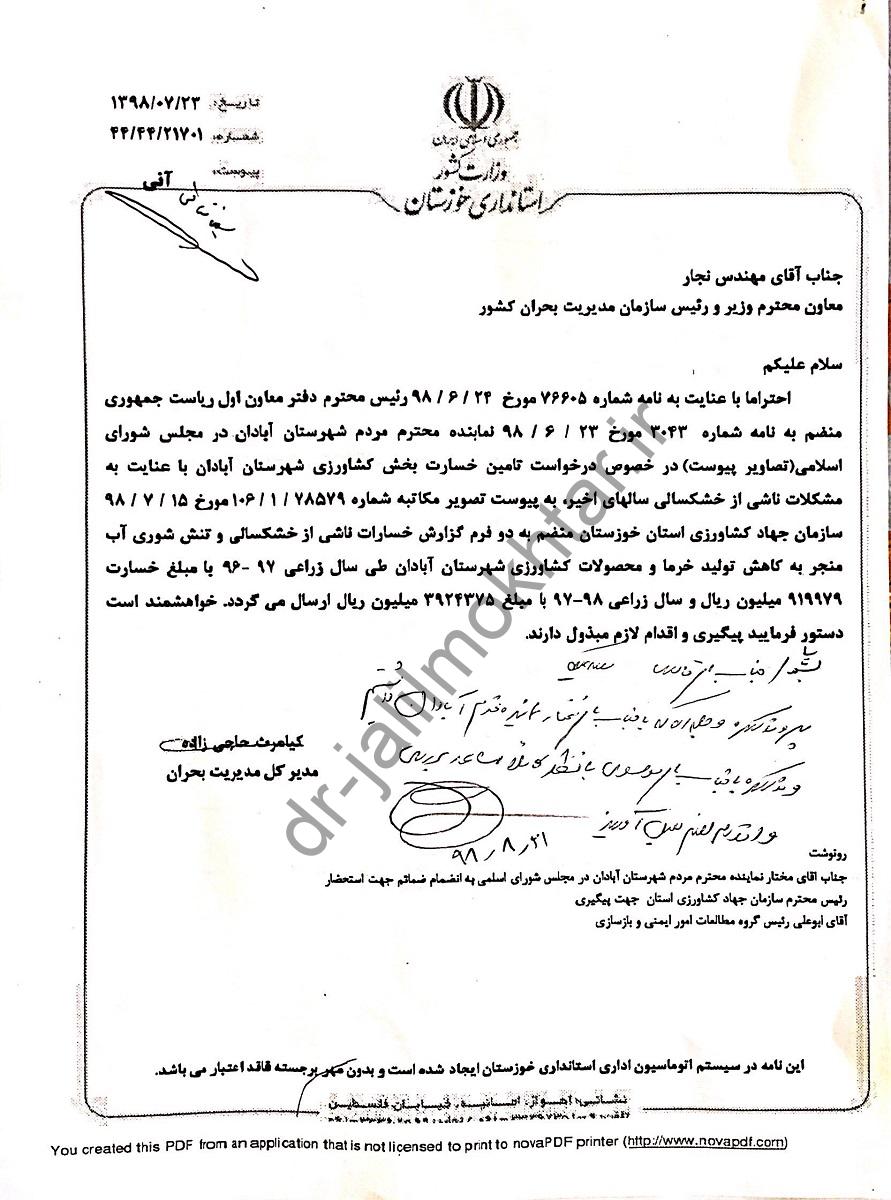 جمهوری اسلامی ایران
وزارت کشور
استانداری خوزستان
تاریخ: ۱۳۹۸/۰۷/۲۳
شماره: ۴۴/۴۴/۲۱۷۰۱
پیوست:
آنی
جناب آقای مهندس نجار
معاون محترم وزیر و رئیس سازمان مدیریت بحران کشور
سلام علیکم
احتراما با عنایت به نامه شماره ۷۶۶۰۵ مورخ ۲۴ / ۶ / ۹۸ رئیس محترم دفتر معاون اول ریاست جمهوری
منضم به نامه شماره ۳۰۴۳ مورخ ۲۳ / ۶ / ۹۸ نماینده محترم مردم شهرستان آبادان در مجلس شورای
اسلامی(تصاویر پیوست) در خصوص درخواست تامین خسارت بخش کشاورزی شهرستان آبادان با عنایت به
مشکلات ناشی از خشکسالی سالهای اخیر، به پیوست تصویر مکاتبه شماره ۷۸۵۷۹ / ۱ / ۱۰۶ مورخ ۱۵ / ۷ / ۹۸
سازمان جهاد کشاورزی استان خوزستان منضم به دو فرم گزارش خسارات ناشی از خشکسالی و تنش شوری آب
منجر به کاهش تولید خرما و محصولات کشاورزی شهرستان آبادان طی سال زراعی ۹۷ -۹۶ با مبلغ خسارت
۹۱۹۹۷۹ میلیون ریال و سال زراعی ۹۸-۹۷ با مبلغ ۳۹۲۴۳۷۵ میلیون ریال ارسال می گردد. خواهشمند است
دستور فرمایید پیگیری و اقدام لازم مبذول دارند.
کیامرث حاجی زاده
مدیر کل مدیریت بحران
۹۸/۸/۲۱
رونوشت
جناب اقای مختار نماینده محترم مردم شهرستان آبادان در مجلس شورای اسلامی به انضمام ضمائم جهت استحضار
رئیس محترم سازمان جهاد کشاورزی استان جهت پیگیری
آقای ابوعلی رئیس گروه مطالعات امور ایمنی و بازسازی
این نامه در سیستم اتوماسیون اداری استانداری خوزستان ایجاد شده است و بدون مهر برجسته فاقد اعتبار می باشد.
نشانی: اهواز، امانیه، خیابان فلسطین
You created this PDF from an application that is not licensed to print to novaPDF printer (http://www.novapdf.com)
dr-jalilmokhtar.ir